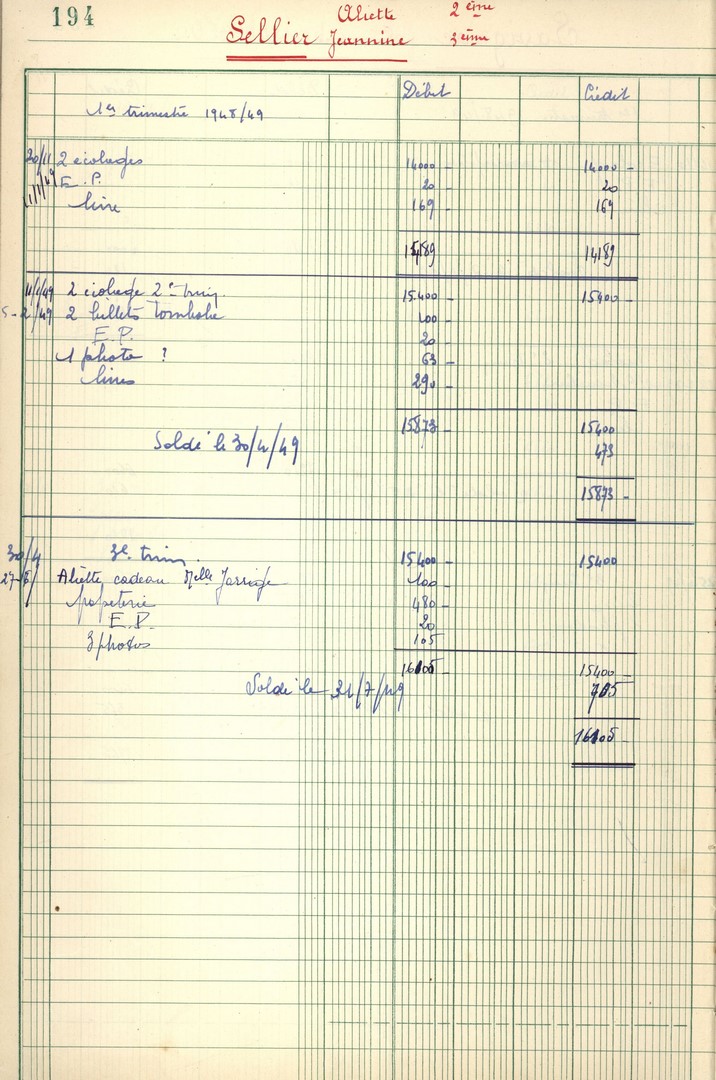 194
Aliette 2ème
Sellier Jeannine 3ème
Début Crédit
1er trimestre 1948/49
20/11 2 écolages 14000 - 14000 -
1/1/49 E.P. 20 - 20
livre 169 - 169
14189 14189
11/1/49 2 écolage 2e trim. 15.400 - 15400 -
5-2/49 2 billets tombola 100 -
E.P. 20 -
1 photo ? 63 -
livres 290 -
15873 - 15400
Soldé le 30/4/49 473
15873 -
30/4 3e trim. 15400 - 15400
Aliette cadeau Melle Jarrige 100 -
papeterie 480 -
E.P. 20
3 photos 105
16105 - 15400
Soldé le 31/7/49 705
16105 -